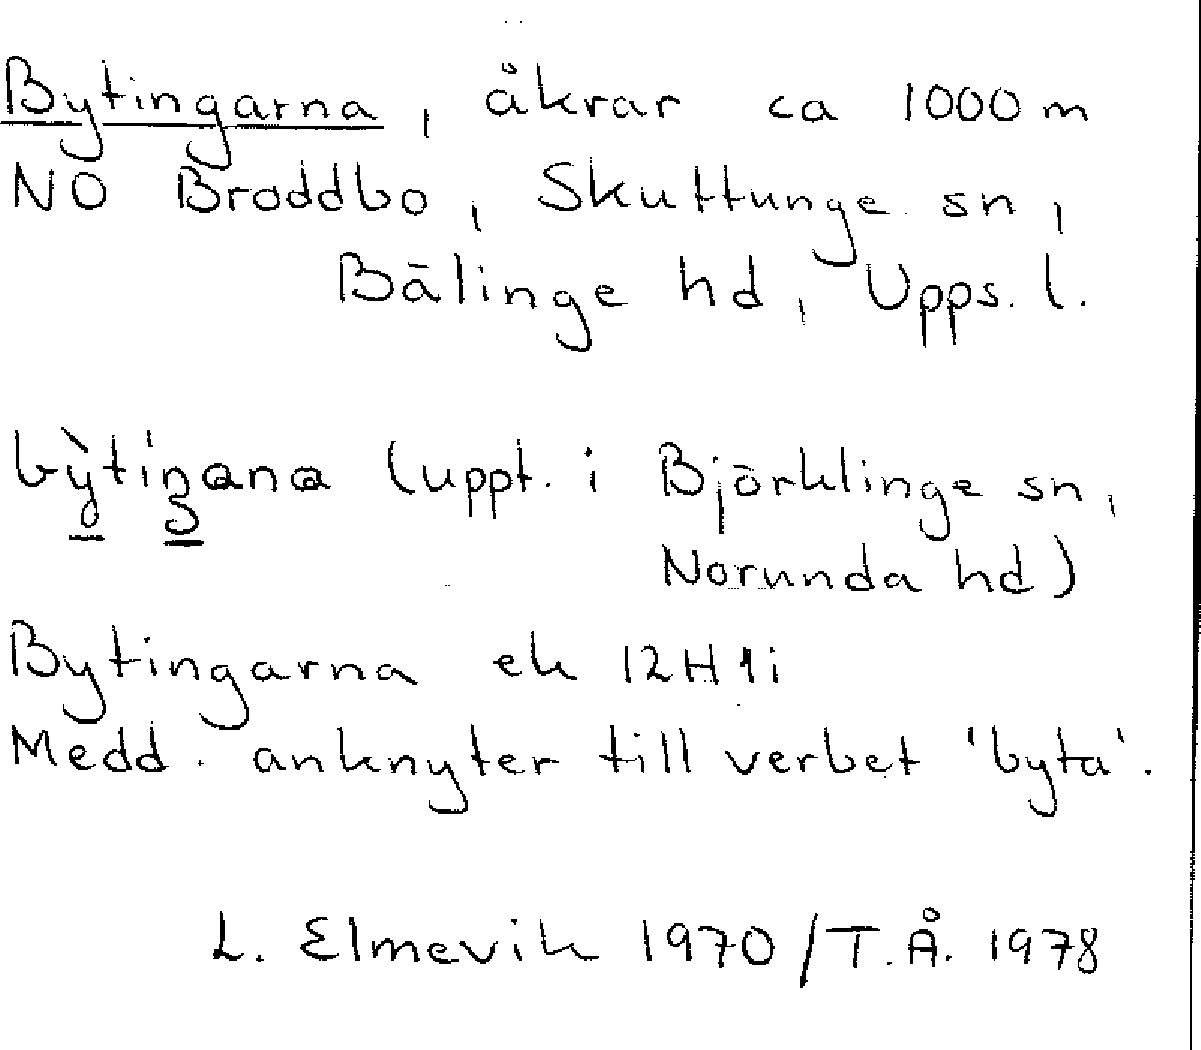 Bytingarna, åkrar ca 1000 m
NO Broddbo, Skuttunge sn,
Bälinge hd, Upps. l.
(uppt. i Björklinge sn,
Norunda hd)
Bytingarna ek 12H1i
Medd. anknyter till verbet 'byta'.
L. Elmevik 1970/T.Å. 1978